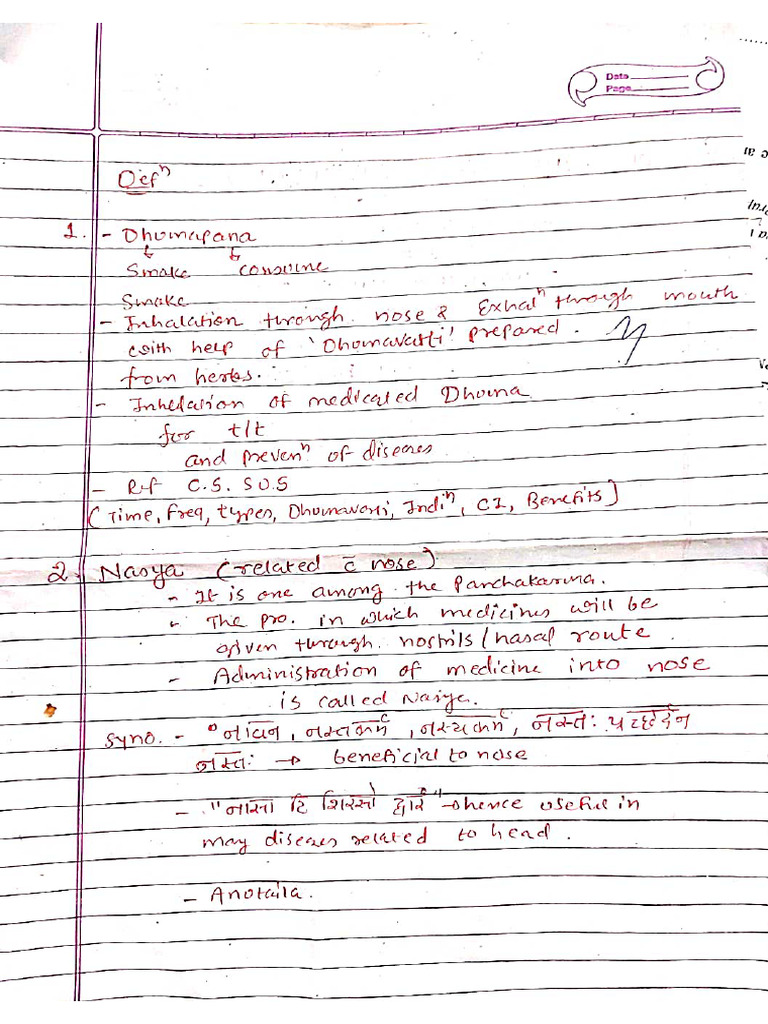 Date
Page
Defⁿ
1. - Dhumapana
Smake consume
Smake
- Inhalation through nose & Exhalⁿ through mouth
with help of 'Dhumavarti' prepared.
from herbs.
- Inhelation of medicated Dhuma
for t/t
and prevenⁿ of diseases
- Ref C.S. SU.5
(Time, Freq, types, Dhumavarti, Indiⁿ, CI, Benefits)
2. Nasya (related c̄ nose)
- It is one among the Panchakarma.
- The pro. in which medicines will be
given through nostrils/nasal route.
- Administration of medicine into nose
is called Nasya.
Syno. - "नावन, नस्तकर्म, नस्यकर्म, नस्तः प्रच्छर्दन
नस्तः → beneficial to nose
- "नासा हि शिरसो द्वारं" → hence useful in
may diseases related to head.
- Anutaila.